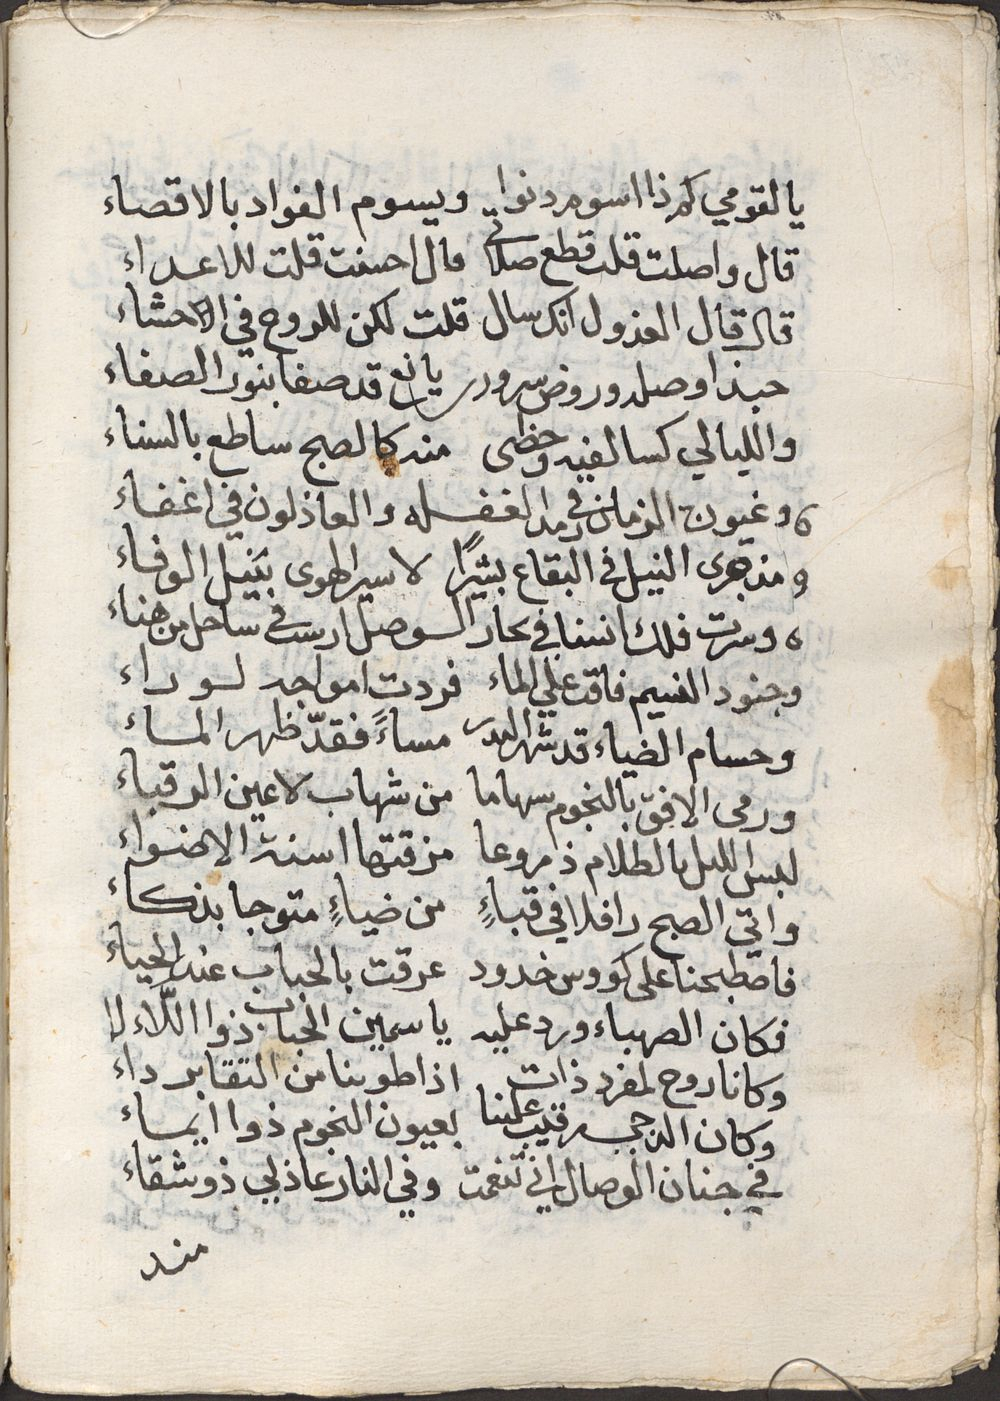 يا لقومي كم ذا اسومه دنوا ويسوم الفواد بالاقصاء
قال واصلت قلت قطع صلاتي قال احسنت قلت للاعداء
قال قال العذول انك سال قلت لكن للروح في الاحشاء
حبذا وصله وروض سرور يانع قد صفا بنور الصفاء
والليالي كسالفيه وحظى منه كالصبح ساطع بالسناء
وعيون الزمان في رمد الغفله والعاذلون في اغفاء
مذ جرى النيل في البقاع بشيرًا لاسير الهوى بنيل الوفاء
وسرت فلك انسنا في بحار الوصل ارست في ساحل من هناء
وجنود النسيم فاقت علي الماء فردت امواجه لوراء
وحسام الضياء قد شهر البدر مساءً فقدّ ظهر الماء
ورمى الافق بالنجوم سهاما من شهاب لاعين الرقباء
لبس الليل بالظلام دروعا مزقتها اسنة الاضواء
واتي الصبح رافلا في قباءٍ من ضياءٍ متوجا بذكاء
فاصطبحنا على كووس خدود عرقت بالحباب عند الحياء
فكان الصهباء ورد عليه ياسمين الحباب ذوا اللّالاء
وكانا روح لمفرد ذات اذا طوينا من التقابر داء
وكان الدجى رقيب علينا بعيون النجوم ذوا ايماء
في جنان الوصال اني تنعمت وفي النار عاذلي ذو شقاء
منه